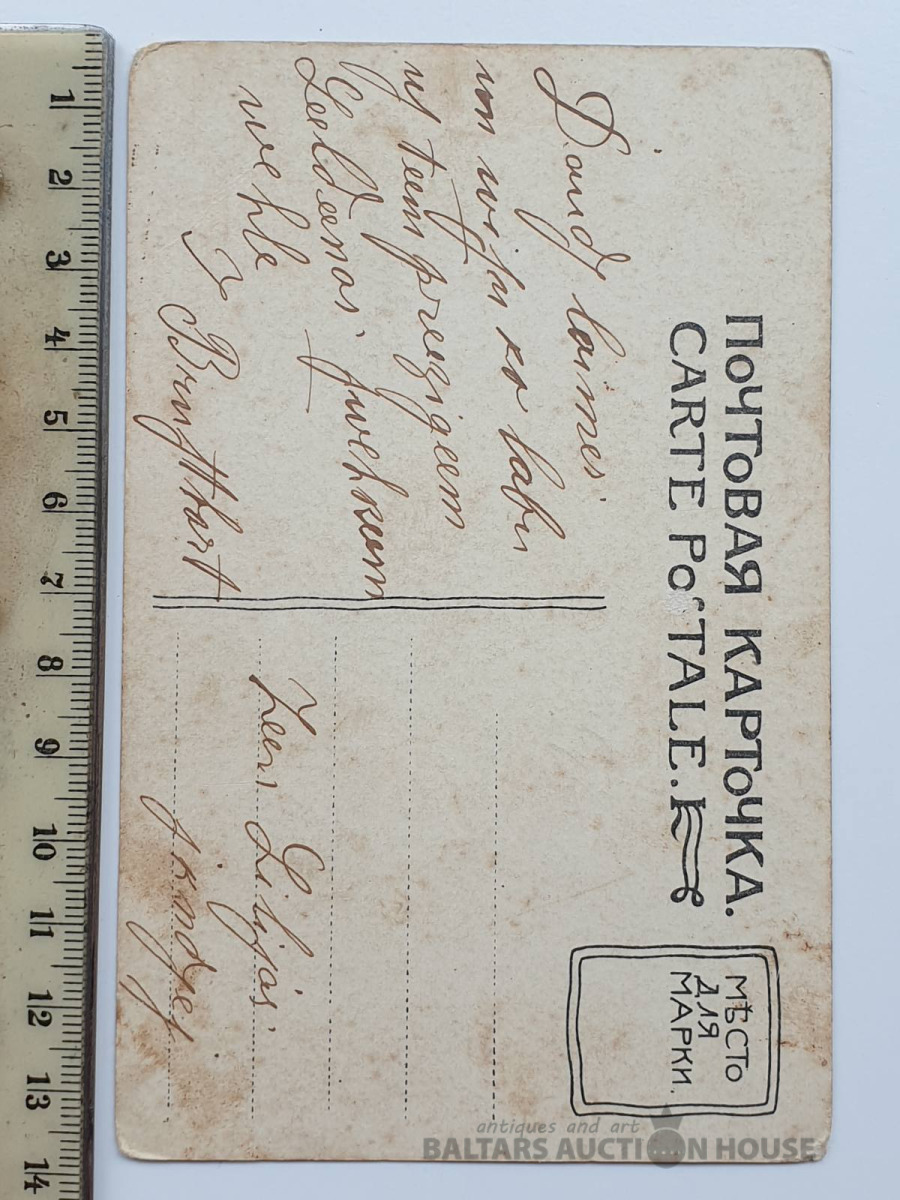 ПОЧТОВАЯ КАРТОЧКА.
CARTE POSTALE.
МѢСТО
ДЛЯ
МАРКИ.
Daudz laimes
un wisu ko labu
us teem preezigeem
Seeldenas swehkeem
wehle
J
Leen Lilijai
1
2
3
4
5
6
7
8
9
10
11
12
13
14
antiques and art
BALTARS AUCTION HOUSE